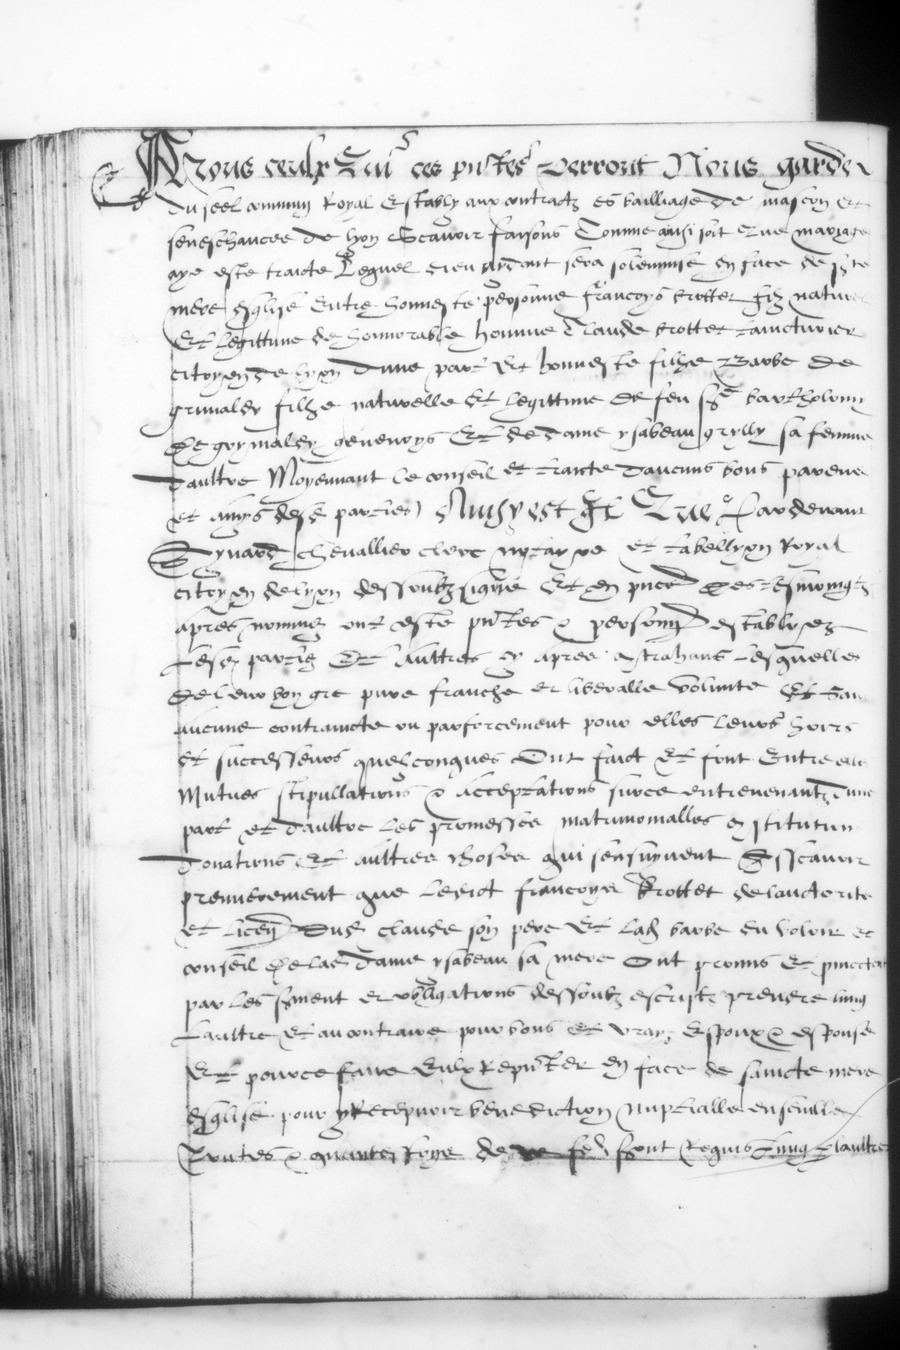 A tous ceulx Qui ces pntes verront Nous garde
du seel commun Royal Estably aux contractz es bailliage de mascon et
seneschaucee de lyon Scavoir faisons Comme ainsi soit que mariage
aye este traicte Lequel dieu aydant sera solempnise en face de ste
mere esglise Entre honneste personne francoys krotter filz naturel
Et legittime de honnorable homme Claude krotter taincturier
citoyen de lyon dune part Et honneste fillie Barbe de
grimaldy fillie naturelle Et legittime de feu sgr bartholomy
de grymaldy genevoys Et de dame ysabeau grylly sa femme
daultre Moyennant le conseil et traicte daucuns bons parens
et amys desd parties Ainsy est Il Que Pardevant
Eynard chevallier clerc notayre et tabellyon Royal
citoyen de lyon dessoubz signe Et en pnce des tesmoingtz
apres nommes ont este pntes & person establyez
Lesd parties Et aultres cy apres Lesquelles
de leur bon gre pure franche et liberalle volunte Et san
aucune contraincte ou parforcement pour elles leurs hoirs
et successeurs quelconques Ont faict Et font Entre elle
Mutues stipullations & acceptations surce entrevenantz dune
part et daultre les promesses matrimonialles Institution
donations Et aultres choses qui sensuyvent Asscavoir
premierement que ledict francoys krotter de lauctorite
et licen Dud claude son pere Et lad barbe du voloir et
conseil de lad dame ysabeau sa mere Ont promis Et
par les sment et obligations dessoubz escriptz prendre lung
Laultre et au contraire pour bons et vrayz Espoux & espouse
Et pource faire Eulx Repnter en face de saincte mere
esglise pour y Recepvoir benediction nuptialle ensemble
Toutes & quantes foys de seront Requis lung laultre